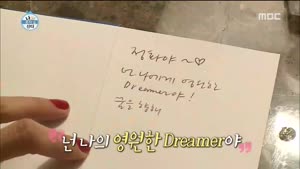 MBC
정화야 ~♡
넌 나에게 영원한
Dreamer야!
꿈을 향해
넌 나의 영원한 Dreamer야